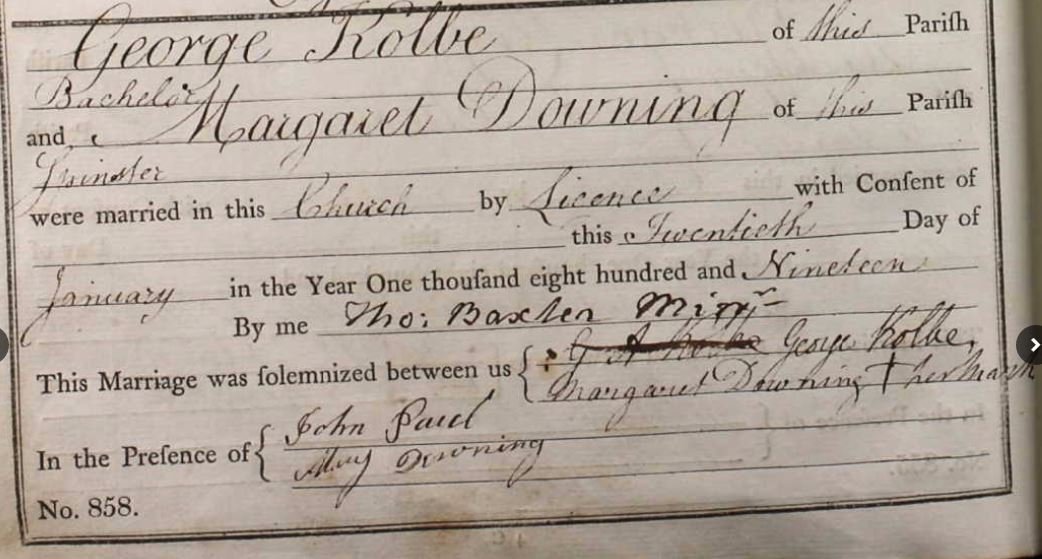 George Kolbe of this Pariſh
Bachelor
and Margaret Downing of this Pariſh
Spinster
were married in this Church by Licence with Conſent of
this Twentieth Day of
January in the Year One thouſand eight hundred and Nineteen
By me Tho: Baxter Minr
This Marriage was ſolemnized between us { George Kolbe,
Margaret Downing † her Mark
In the Preſence of { John Paul
Mary Downing
No. 858.